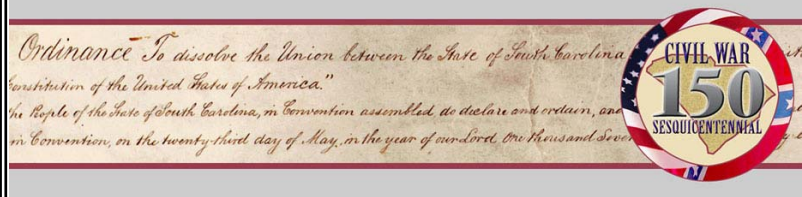 Ordinance To dissolve the Union between the State of South Carolina
Constitution of the United States of America."
the People of the State of South Carolina, in Convention assembled do declare and ordain, and
in Convention, on the twenty-third day of May, in the year of our Lord One thousand Seven
CIVIL WAR
150
SESQUICENTENNIAL